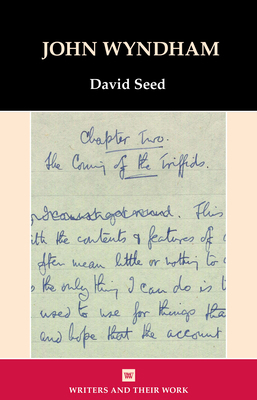 JOHN WYNDHAM
David Seed
Chapter Two.
The Coming of the Triffids.
record. This
ith the contents & features of
often mean little or nothing to
s the only thing I can do is t
used to use for things tha
and hope that the account
WRITERS AND THEIR WORK